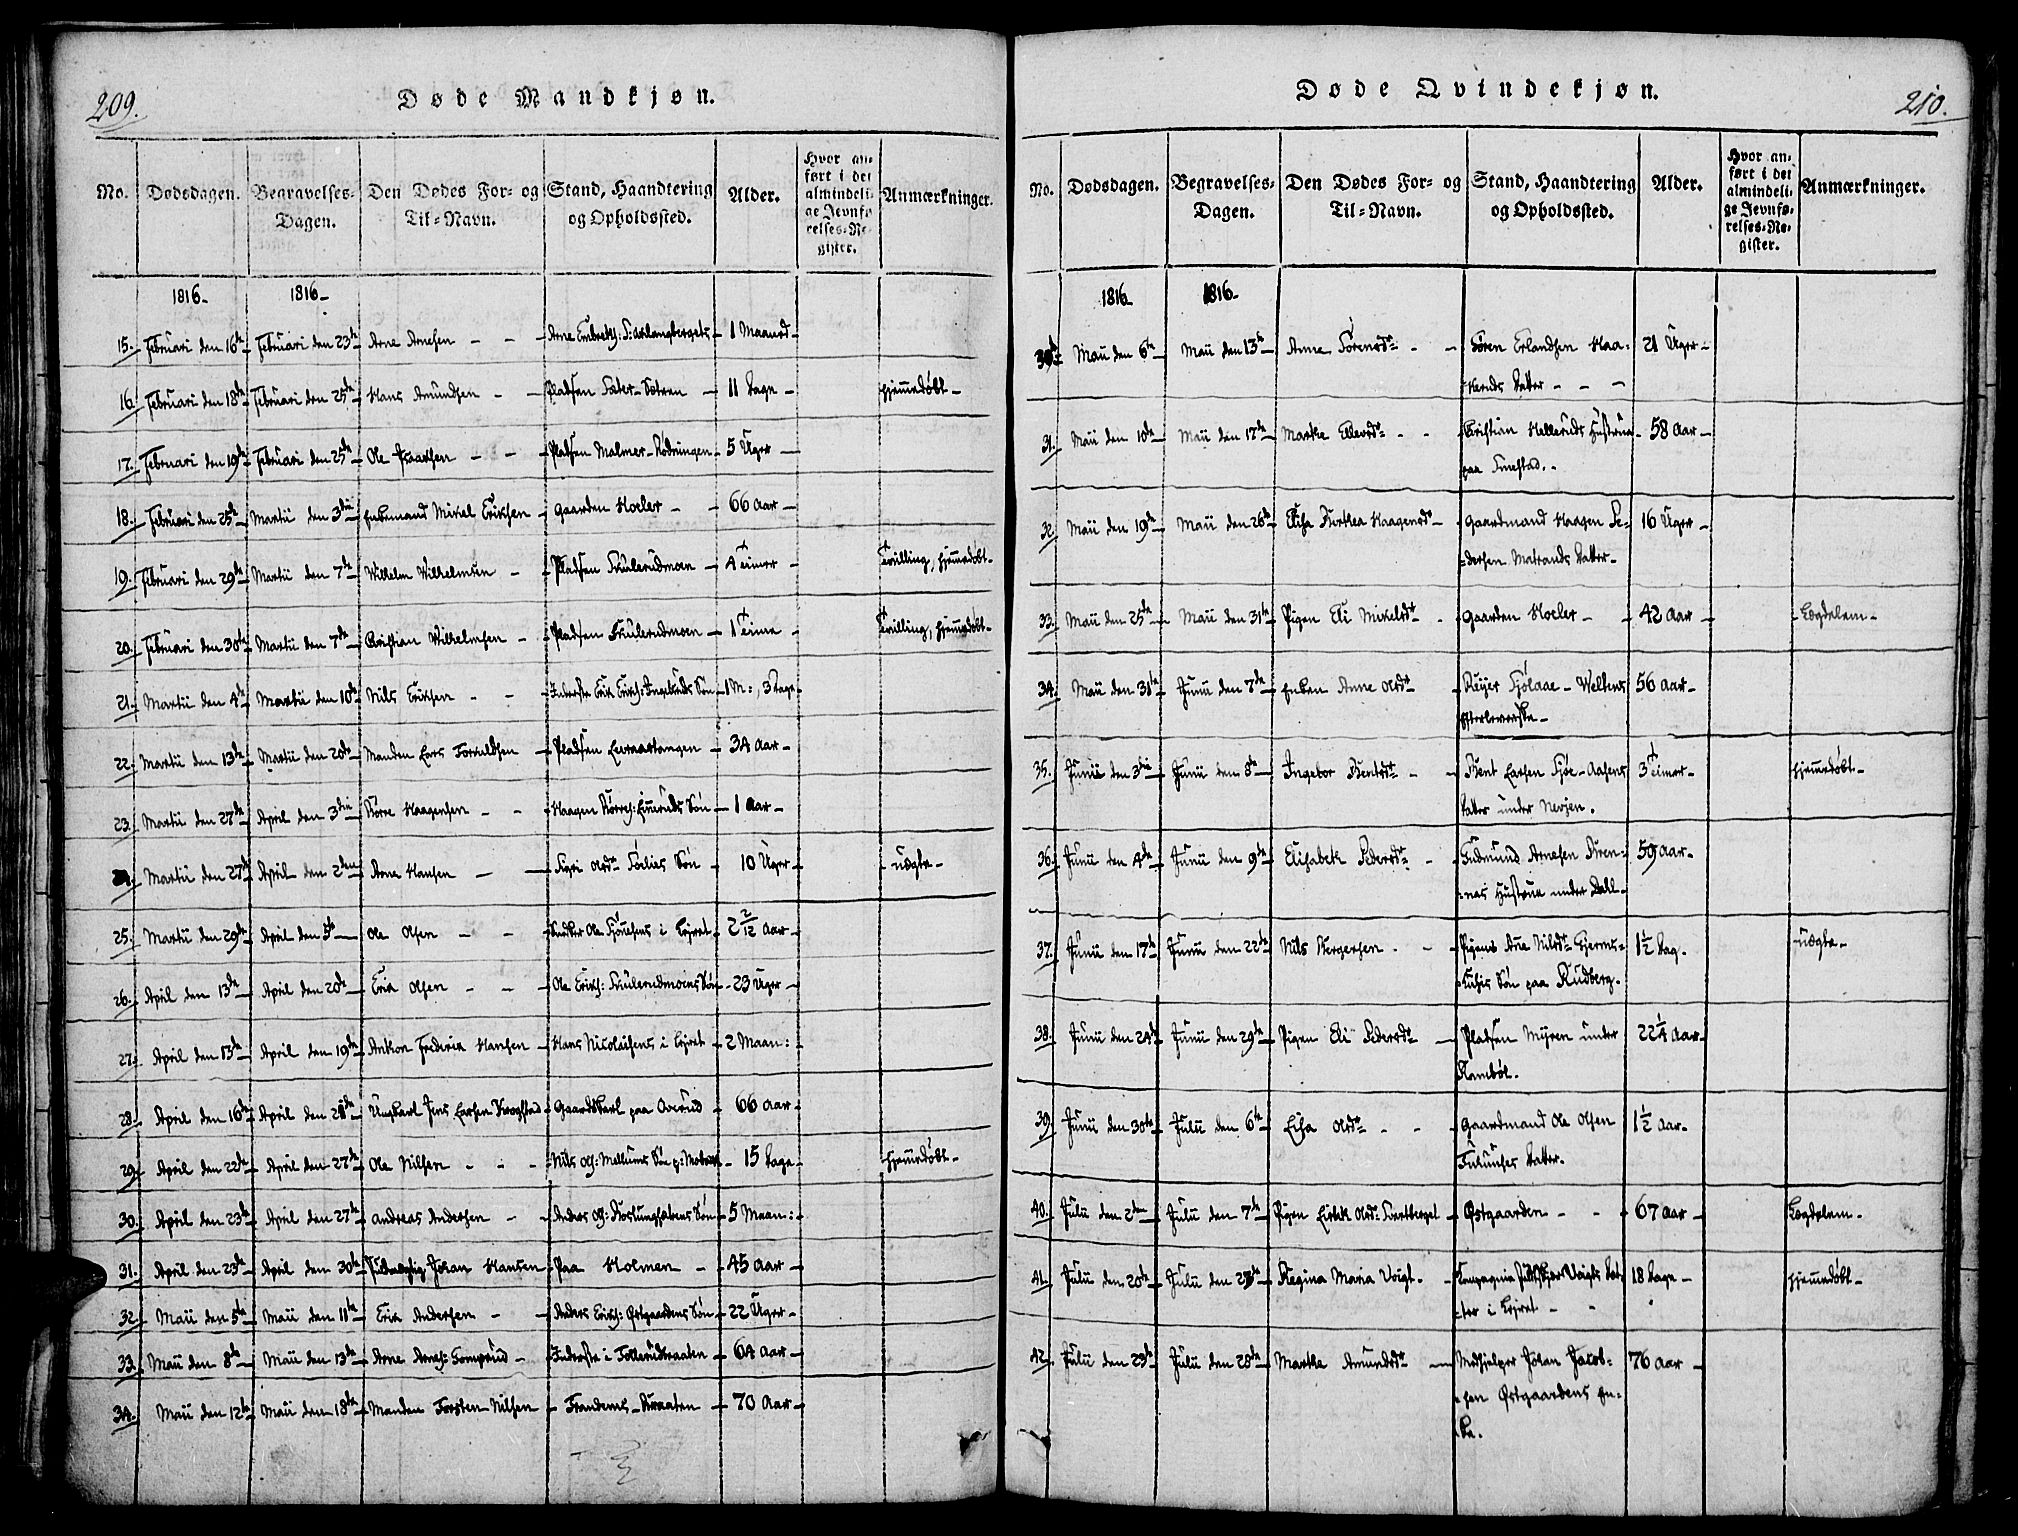 209.
Døde Mandkjøn.
No. Dødsdagen. Begravelses-Dagen. Den Dødes For- og Til-Navn. Stand, Haandtering og Opholdssted. Alder. Hvor anført i det almindelige Jevnførelses-Register. Anmærkninger.
1816 - 1816 -
15. Februari den 16de Februari den 23de Arne Arnesen - - Arne 1 Maaned
16. Februari den 18de Februari den 25de Hans Amundsen - - Pladsen Sæter-Sætren - 11 Dage - hjemmedøbt -
17. Februari den 19de Februari den 25de Ole - - Pladsen Malmer-Rødningen - 5 Uger -
18. Februari den 25de Martii den 3die Enkemand Mikel Eriksen - Gaarden Hoeler - - 66 Aar -
19. Februari den 29de Martii den 7de Wilhelm Wilhelmsen - Pladsen Skulerudmoen - 4 Timer - Tvilling, hjemmedøbt -
20. Februari den 30te Martii den 7de Christian Wilhelmsen - Pladsen Skulerudmoen - 1 Time - Tvilling, hjemmedøbt -
21. Martii den 4de Martii den 10de Nils Eriksen - - Inderste Erik Eriks: Søn - 1 M:, 3 Dage -
22. Martii den 13de Martii den 20de Manden Lars Torkildsen - Pladsen 34 Aar -
23. Martii den 27de April den 3die Børre Haagensen - - Haagen Børres: Søn - 1 Aar -
24. Martii den 27de April den 2den Arne Hansen - - Sigri Olsdr Sørlies Søn - 10 Uger - uægte -
25. Martii den 29de April den 5te Ole Olsen - - Ole i Lejret - 2 2/12 Aar -
26. April den 13de April den 20de Erik Olsen - - Ole Eriks: Skulerudmoens Søn - 23 Uger -
27. April den 13de April den 19de Anthon Frederik Hansen - Hans Nicolaisens i Lejret - 2 Maan: -
28. April den 16de April den 21de Ungkarl Jens Larsen Krogstad - Gaardskarl paa Overud - 66 Aar -
29. April den 22de April den 27de Ole Nilsen - - Nils Ols: Mellums Søn p: 15 Dage - hjemmedøbt -
30. April den 23de April den 27de Andreas Andersen - - Anders Ols: Søn - 5 Maan: -
31. April den 23de April den 30te Johan Hansen - Paa Holmen - 45 Aar -
32. Maii den 5te Maii den 11te Erik Andersen - - Anders Eriks: Østgaardens Søn - 22 Uger -
33. Maii den 8de Maii den 13de Arne Arnes: - Inderste i 64 Aar -
34. Maii den 12te Maii den 18de Manden Torsten Nilsen - Trandems-Braaten - 70 Aar -
Døde Qvindekjøn.
210.
No. Dødsdagen. Begravelses-Dagen. Den Dødes For- og Til-Navn. Stand, Haandtering og Opholdssted. Alder. Hvor anført i det almindelige Jevnførelses-Register. Anmærkninger.
1816 1816 -
30te Maii den 6te Maii den 13de Anne Sørensdr - - Søren Erlandsen Haa-
-keruds Datter - - - 21 Uger -
31. Maii den 10de Maii den 17de Marthe Ellevsdr - - Christian Helleruds Hustrue
paa - 58 Aar -
32. Maii den 19de Maii den 26de Elisa Dorthea Haagensdr - Gaardmand Haagen Pe-
-dersen Matrands Datter - 16 Uger -
33. Maii den 25de Maii den 31te Pigen Eli Mikelsdr - Gaarden Hoeler - - 42 Aar - Lægdelem -
34. Maii den 31te Junii den 7de Enken Anne Olsdr Reijer Sjølaae-Weltens
Efterleverske - 56 Aar -
35. Junii den 3die Junii den 8de Ingebor Bentsdr - - Bent Larsen Sjøe-Aasens
Datter under Nevjen. 3 Timer - hjemmedøbt -
36. Junii den 4de Junii den 9de Elisabeth Pedersdr - - Gudmund Arnesen
Hustrue under 59 Aar -
37. Junii den 17de Junii den 22de Nils Børgersen - - Pigens Ane Nilsdr
Søn paa Rudberg. 1½ Dag - uægte -
38. Junii den 24de Junii den 29de Pigen Eli Pedersdr - Pladsen Myren under
22¼ Aar -
39. Junii den 30te Julii den 6te Lisa Olsdr - - - Gaardmand Ole Olsen
Datter. 1½ Aar -
40. Julii den 2den Julii den 7de Pigen Lisbet Olsdr Svartberget - Østgaarden - - - 67 Aar - Lægdelem -
41. Julii den 20de Julii den 23de Regina Maria Voigt. - Compagnie Voigts Dat-
-ter i Lejret - - 18 Dage - hjemmedøbt -
42. Julii den 23de Julii den 28de Marthe Amundsdr - Medhjelper Johan Jacob-
-sen Østgaardens En-
-ke. 76 Aar -